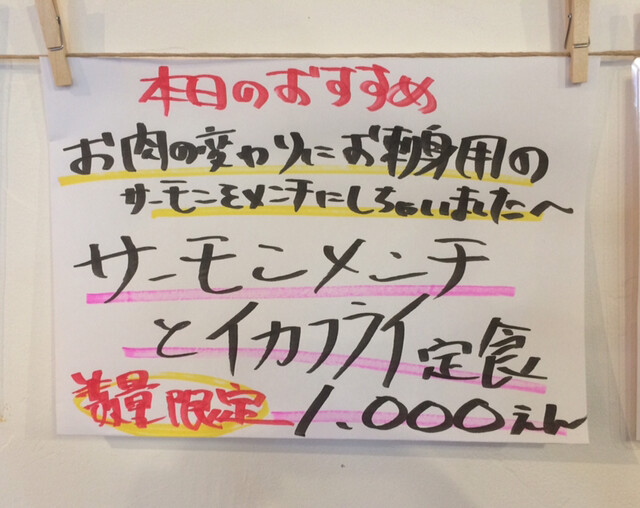 本日のおすすめ
お肉の変わりにお刺身用の
サーモンをメンチにしちゃいました〜
サーモンメンチ
とイカフライ定食
数量限定 1.000えん